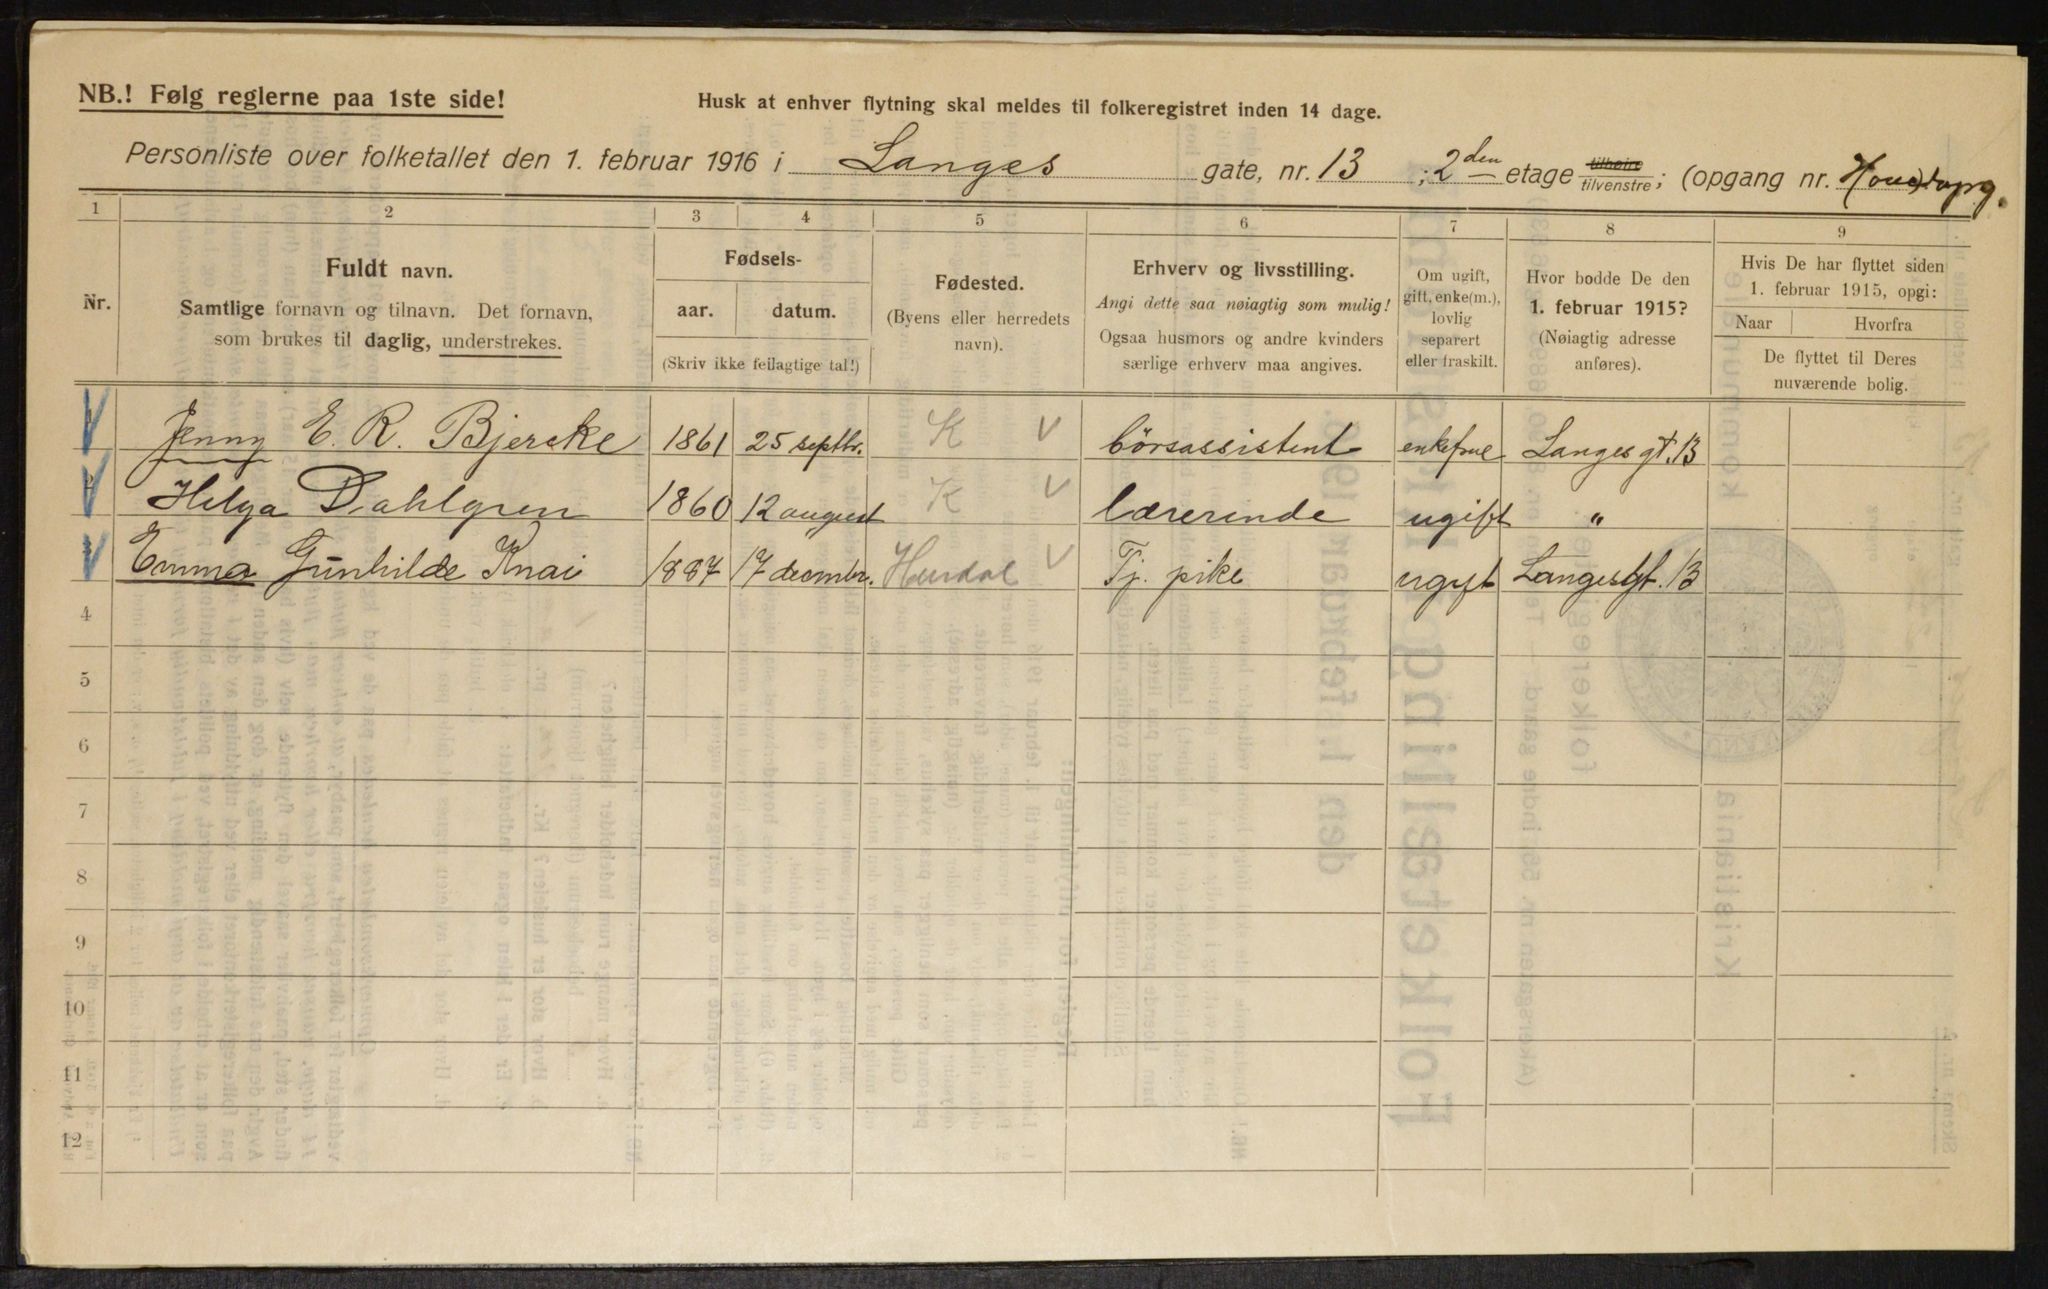 NB.! Følg reglerne paa 1ste side!
Husk at enhver flytning skal meldes til folkeregistret inden 14 dage.
Personliste over folketallet den 1. februar 1916 i Langes gate, nr. 13 ; 2den etage tilhøire tilvenstre; (opgang nr.
1 2 3 4 5 6 7 8 9
Nr.
Fuldt navn.
Samtlige fornavn og tilnavn. Det fornavn,
som brukes til daglig, understrekes.
Fødsels-
aar. datum.
(Skriv ikke feilagtige tal!)
Fødested.
(Byens eller herredets
navn).
Erhverv og livsstilling.
Angi dette saa nøiagtig som mulig!
Ogsaa husmors og andre kvinders
særlige erhverv maa angives.
Om ugift,
gift, enke(m.),
lovlig
separert
eller fraskilt.
Hvor bodde De den
1. februar 1915?
(Nøiagtig adresse
anføres).
Hvis De har flyttet siden
1. februar 1915, opgi:
Naar Hvorfra
De flyttet til Deres
nuværende bolig.
Jenny E. R. Bjercke 1861 25 septbr. K V börsassistent enkefrue Langes gt. 13
Helga Dahlgren 1860 12 august K V lærerinde ugift "
Emma Gunhilde Knai 1887 17 decmbr. Hurdal V Tj. pike ugift Langesgt. 13
4
5
6
7
8
9
10
11
12